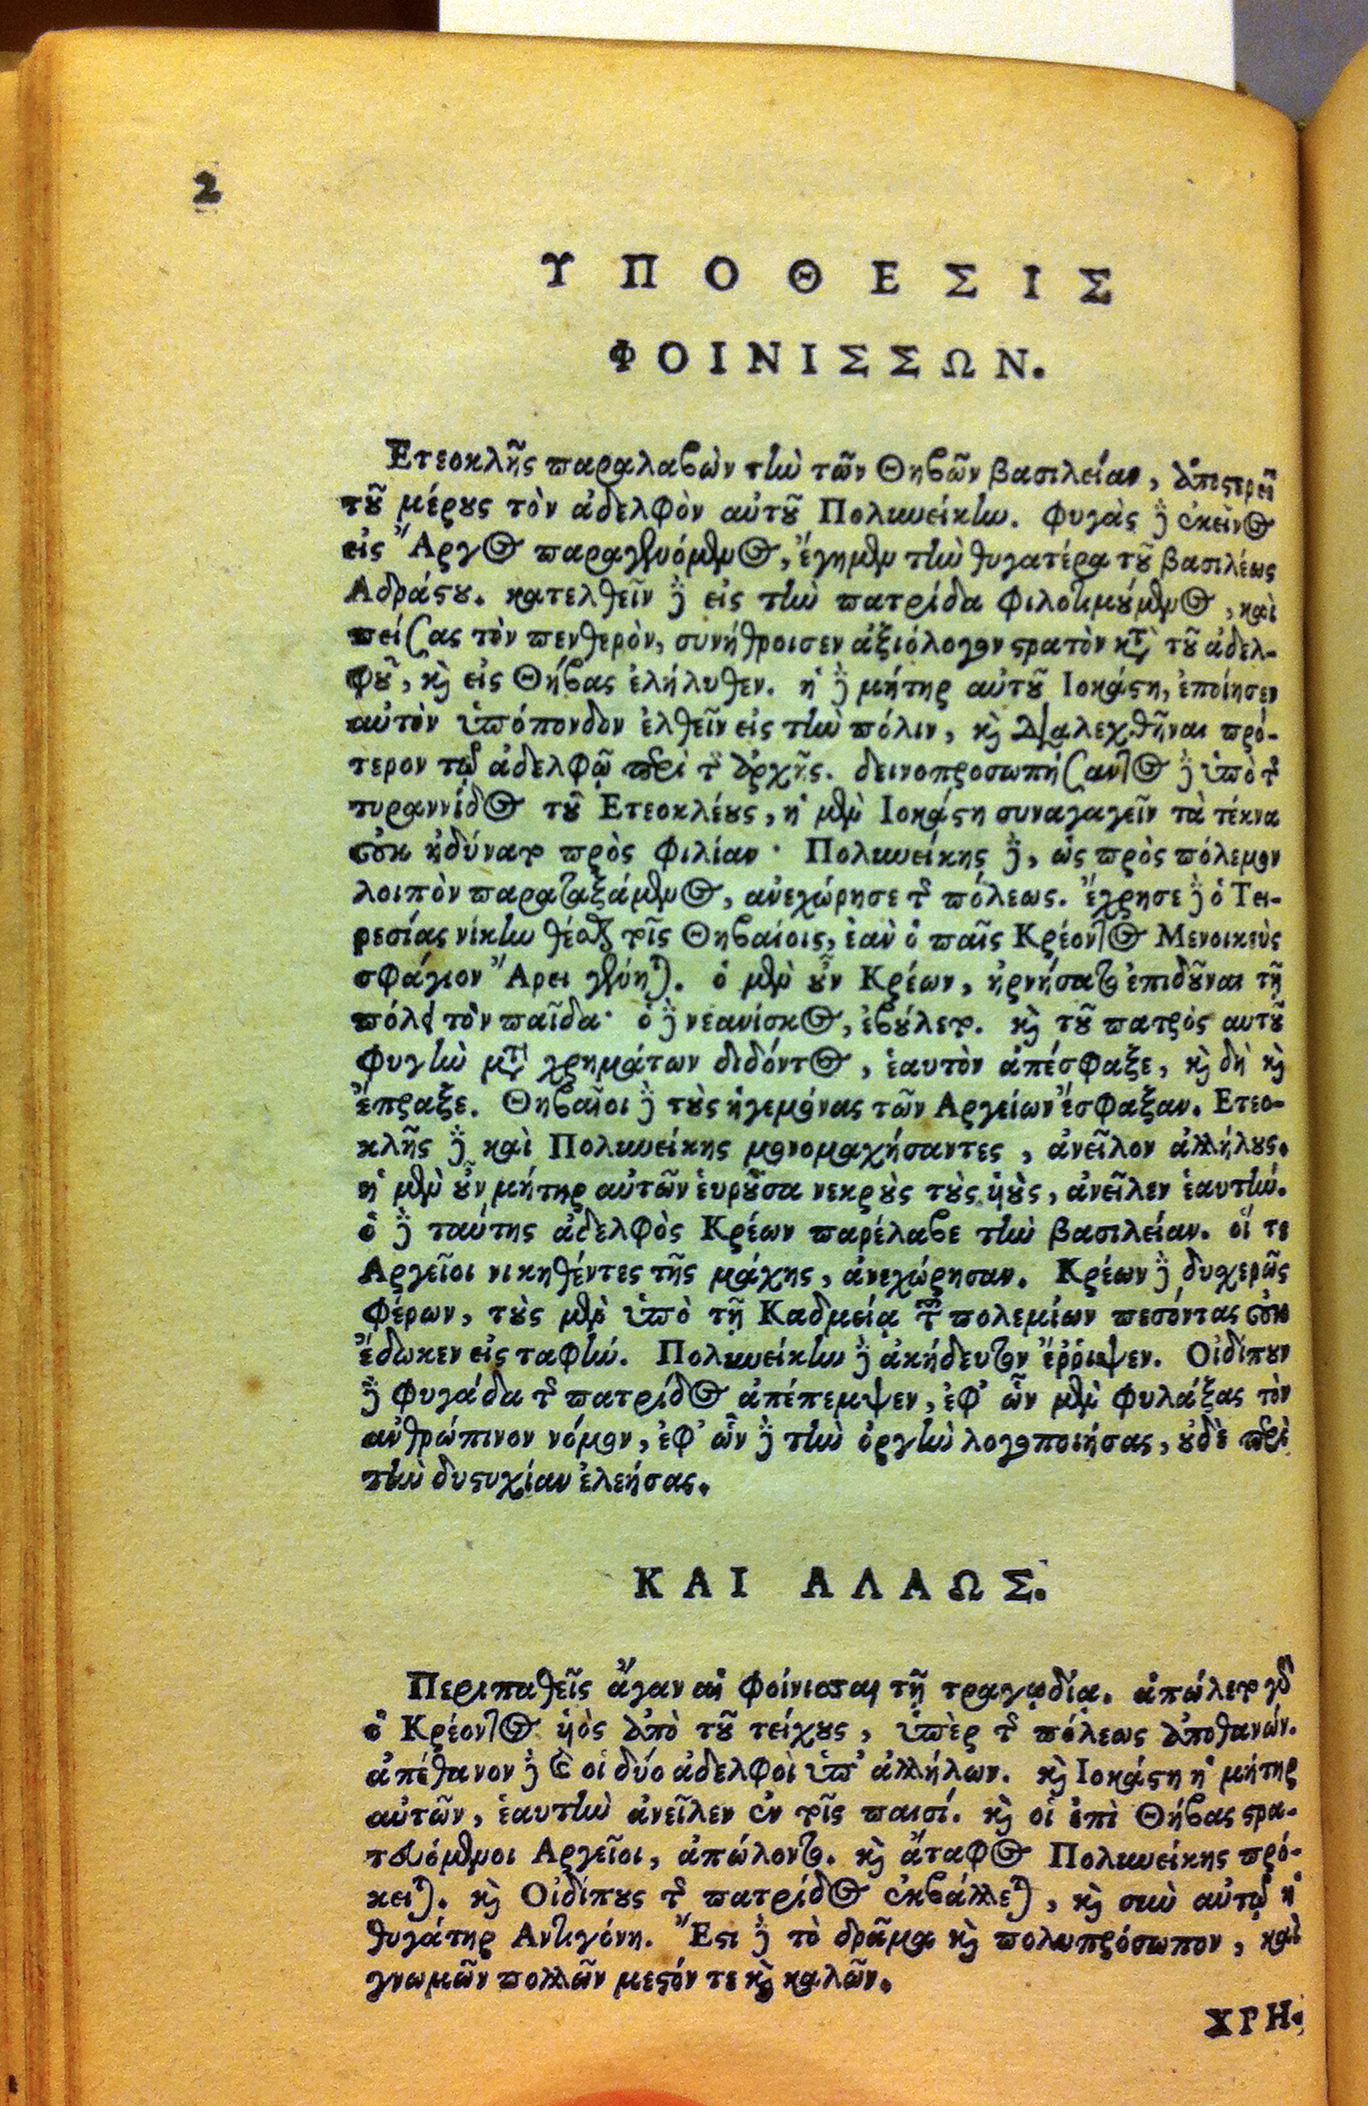 2
ΥΠΟΘΕΣΙΣ
ΦΟΙΝΙΣΣΩΝ.
Ετεοκλῆς παραλαβὼν τὴν τῶν Θηβῶν βασιλείαν, ἀποστερεῖ
τοῦ μέρους τὸν ἀδελφὸν αὐτοῦ Πολυνείκην. φυγὰς δὲ ἐκεῖνος
εἰς Ἄργος παραγενόμενος, ἔγημεν τὴν θυγατέρα τοῦ βασιλέως
Αδράστου. κατελθεῖν δὲ εἰς τὴν πατρίδα φιλοτιμούμενος, καὶ
πείσας τὸν πενθερὸν, συνήθροισεν ἀξιόλογον στρατὸν κατὰ τοῦ ἀδελ-
φοῦ, καὶ εἰς Θήβας ἐλήλυθεν. ἡ δὲ μήτηρ αὐτοῦ Ιοκάστη, ἐποίησεν
αὐτὸν ὑπόπονδον ἐλθεῖν εἰς τὴν πόλιν, καὶ διαλεχθῆναι πρό-
τερον τῷ ἀδελφῷ περὶ τῆς ἀρχῆς. δεινοπροσωπήσαντος δὲ ὑπὸ τῆς
τυραννίδος τοῦ Ετεοκλέους, ἡ μὲν Ιοκάστη συναγαγεῖν τὰ τέκνα
οὐκ ἠδύνατο πρὸς φιλίαν· Πολυνείκης δὲ, ὡς πρὸς πόλεμον
λοιπὸν παραταξάμενος, ἀνεχώρησε τῆς πόλεως. ἔχρησε δὲ ὁ Τει-
ρεσίας νίκην ἔσεσθαι τοῖς Θηβαίοις, ἐὰν ὁ παῖς Κρέοντος Μενοικεὺς
σφάγιον Ἄρει γένηται. ὁ μὲν οὖν Κρέων, ἠρνήσατο ἐπιδοῦναι τῇ
πόλει τὸν παῖδα· ὁ δὲ νεανίσκος, ἐβούλετο. καὶ τοῦ πατρὸς αυτοῦ
φυγὴν μετὰ χρημάτων διδόντος, ἑαυτὸν ἀπέσφαξε, καὶ δὴ καὶ
ἔπραξε. Θηβαῖοι δὲ τοὺς ἡγεμόνας τῶν Αργείων ἔσφαξαν. Ετεο-
κλῆς δὲ καὶ Πολυνείκης μονομαχήσαντες, ἀνεῖλον ἀλλήλους.
ἡ μὲν οὖν μήτηρ αὐτῶν εὑροῦσα νεκροὺς τοὺς υἱοὺς, ἀνεῖλεν ἑαυτήν.
ὁ δὲ ταύτης ἀδελφὸς Κρέων παρέλαβε τὴν βασιλείαν. οἵ τε
Αργεῖοι νικηθέντες τῆς μάχης, ἀνεχώρησαν. Κρέων δὲ δυχερῶς
φέρων, τοὺς μὲν ὑπὸ τῇ Καδμείᾳ τῶν πολεμίων πεσόντας οὐκ
ἔδωκεν εἰς ταφήν. Πολυνείκην δὲ ἀκήδευτον ἔῤῥιψεν. Οἰδίπουν
δὲ φυγάδα τῆς πατρίδος ἀπέπεμψεν, ἐφ' ὧν μὲν φυλάξας τὸν
ανθρώπινον νόμον, ἐφ' ὧν δὲ τὴν ὀργὴν λογοποιήσας, οὐδὲ περὶ
τὴν δυστυχίαν ἐλεήσας.
ΚΑΙ ΑΛΛΩΣ.
Περιπαθεῖς ἄγαν αἱ Φοίνισσαι τῇ τραγῳδίᾳ. ἀπώλετο γὰρ
ὁ Κρέοντος υἱὸς ἀπὸ τοῦ τείχους, ὑπὲρ τῆς πόλεως ἀποθανών.
ἀπέθανον δὲ καὶ οἱ δύο ἀδελφοὶ ὑπ' ἀλλήλων. καὶ Ιοκάστη ἡ μήτηρ
αὐτῶν, ἑαυτὴν ἀνεῖλεν ἐν τοῖς παισί. καὶ οἱ ἐπὶ Θήβας στρα-
τευόμενοι Αργεῖοι, ἀπώλοντο. καὶ ἄταφος Πολυνείκης πρό-
κειται. καὶ Οἰδίπους τῆς πατρίδος ἐκβάλλεται, καὶ σὺν αὐτῷ ἡ
θυγάτηρ Αντιγόνη. Ἔστι δὲ τὸ δρᾶμα καὶ πολυπρόσωπον, καὶ
γνωμῶν πολλῶν μεστόν τε καὶ καλῶν.
ΧΡΗ.